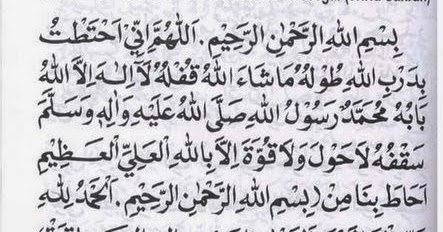 بِسْمِ اللهِ الرَّحْمٰنِ الرَّحِيْمِ. اَللّٰهُمَّ اِنِّيْ اَحْتَطْتُ
بِدَرْبِ اللهِ طُوْلُهُ مَاشَاءَ اللهُ قُفْلُهُ لَآ اِلٰهَ اِلَّا اللهُ
بَابُهُ مُحَمَّدٌ رَسُوْلُ اللهِ صَلَّى اللهُ عَلَيْهِ وَاٰلِهِ وَسَلَّمَ
سَقْفُهُ لَاحَوْلَ وَلَا قُوَّةَ اِلَّا بِاللهِ الْعَلِيِّ الْعَظِيْمِ
اَحَاطَ بِنَا مِنْ (بِسْمِ اللهِ الرَّحْمٰنِ الرَّحِيْمِ. اَلْحَمْدُ لِلّٰهِ